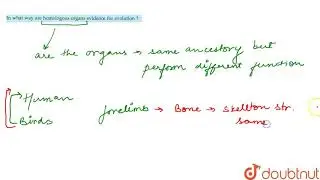 In what way are homologous organs evidence for evolution ?
are the organs → same ancestory but
perform different function
Human
Birds
forelimb → Bone → skeleton str.
same
doubtnut